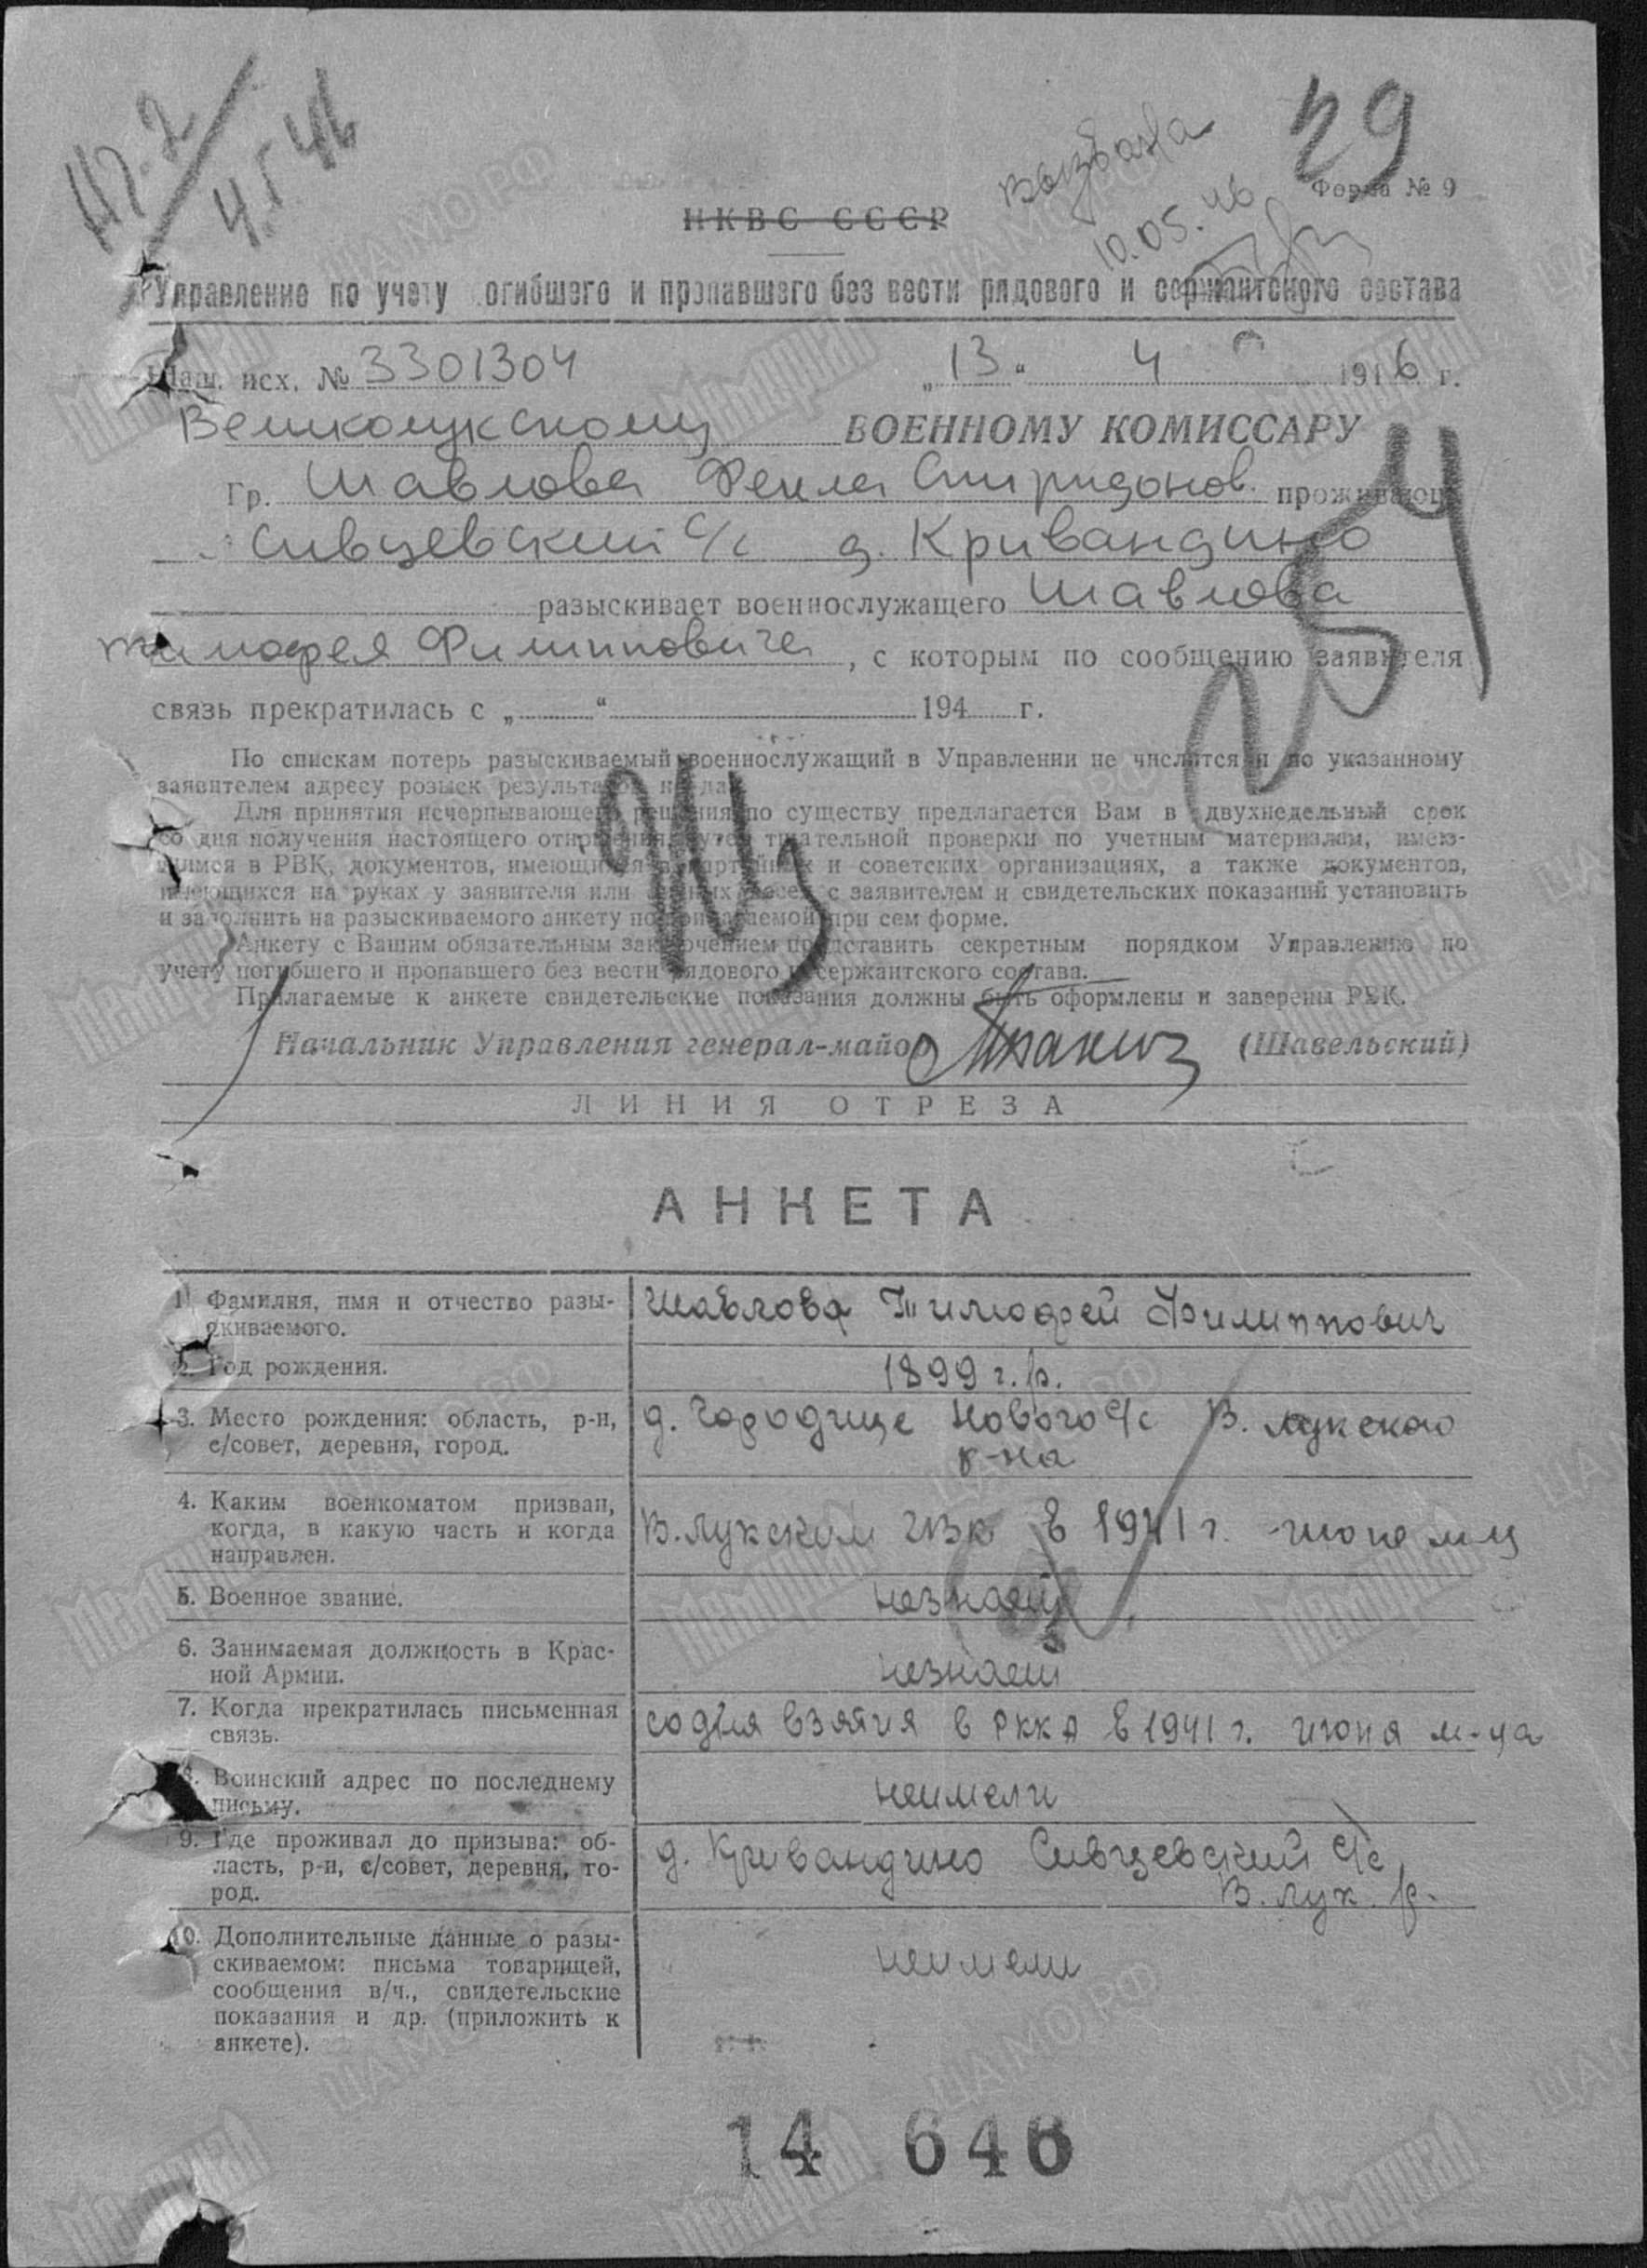 29
4.5 46
Вызвана
10.05.46
Форма № 9
НКВС СССР
Управление по учету огибшего и пропавшего без вести рядового и сержантского состава
Наш. исх. № 3301304 „13“ 4 1946 г.
Великолукскому ВОЕННОМУ КОМИССАРУ
Гр. Шавлова Фекла Спиридонов. проживающ
Сивцевский с/с д. Кривандино
разыскивает военнослужащего Шавлова
Тимофея Филипповича, с которым по сообщению заявителя
связь прекратилась с „ “ 194 г.
По спискам потерь разыскиваемый военнослужащий в Управлении не числится и по указанному
заявителем адресу розыск результатов не дал.
Для принятия исчерпывающего решения по существу предлагается Вам в двухнедельный срок
со дня получения настоящего отношения путем тщательной проверки по учетным материалам, имею-
щимся в РВК, документов, имеющихся в партийных и советских организациях, а также документов,
имеющихся на руках у заявителя или личных бесед с заявителем и свидетельских показаний установить
и заполнить на разыскиваемого анкету по прилагаемой при сем форме.
Анкету с Вашим обязательным заключением представить секретным порядком Управлению по
учету погибшего и пропавшего без вести рядового и сержантского состава.
Прилагаемые к анкете свидетельские показания должны быть оформлены и заверены РВК.
Начальник Управления генерал-майор (Шавельский)
ЛИНИЯ ОТРЕЗА
АНКЕТА
1. Фамилия, имя и отчество разы-
скиваемого.
Шавлова Тимофей Филиппович
2. Год рождения.
1899 г.р.
3. Место рождения: область, р-н,
с/совет, деревня, город.
д. Городище Нового с/с В. Лукского
р-на
4. Каким военкоматом призван,
когда, в какую часть и когда
направлен.
В. Лукским ГВК в 1941 г. июне м-ц
5. Военное звание.
незнаем
6. Занимаемая должность в Крас-
ной Армии.
незнаем
7. Когда прекратилась письменная
связь.
содня взятия в РККА в 1941 г. июня м-ца
8. Воинский адрес по последнему
письму.
неимели
9. Где проживал до призыва: об-
ласть, р-н, с/совет, деревня, го-
род.
д. Кривандино Сивцевский с/с
В. Лук. р.
10. Дополнительные данные о разы-
скиваемом: письма товарищей,
сообщения в/ч., свидетельские
показания и др. (приложить к
анкете).
неимели
14 646